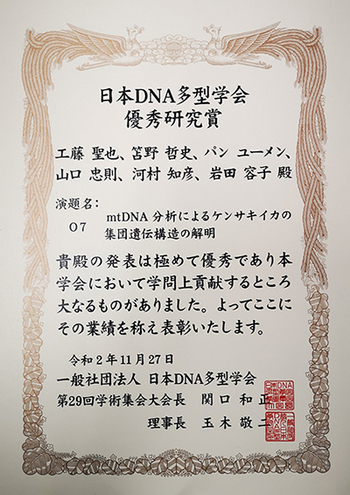 日本DNA多型学会
優秀研究賞
工藤 聖也、筥野 哲史、パン ユーメン、
山口 忠則、河村 知彦、岩田 容子 殿
演題名:
O7 mtDNA 分析によるケンサキイカの
集団遺伝構造の解明
貴殿の発表は極めて優秀であり本
学会において学問上貢献するところ
大なるものがありました。よってここに
その業績を称え表彰いたします。
令和2年11月27日
一般社団法人 日本DNA多型学会
第29回学術集会大会長 関口 和正
理事長 玉木 敬二